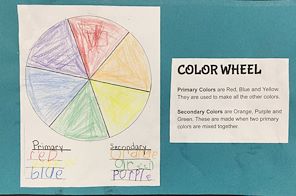 Primary
red
blue
Secondary
orange
green
purple
COLOR WHEEL
Primary Colors are Red, Blue and Yellow.
They are used to make all the other colors.
Secondary Colors are Orange, Purple and
Green. These are made when two primary
colors are mixed together.